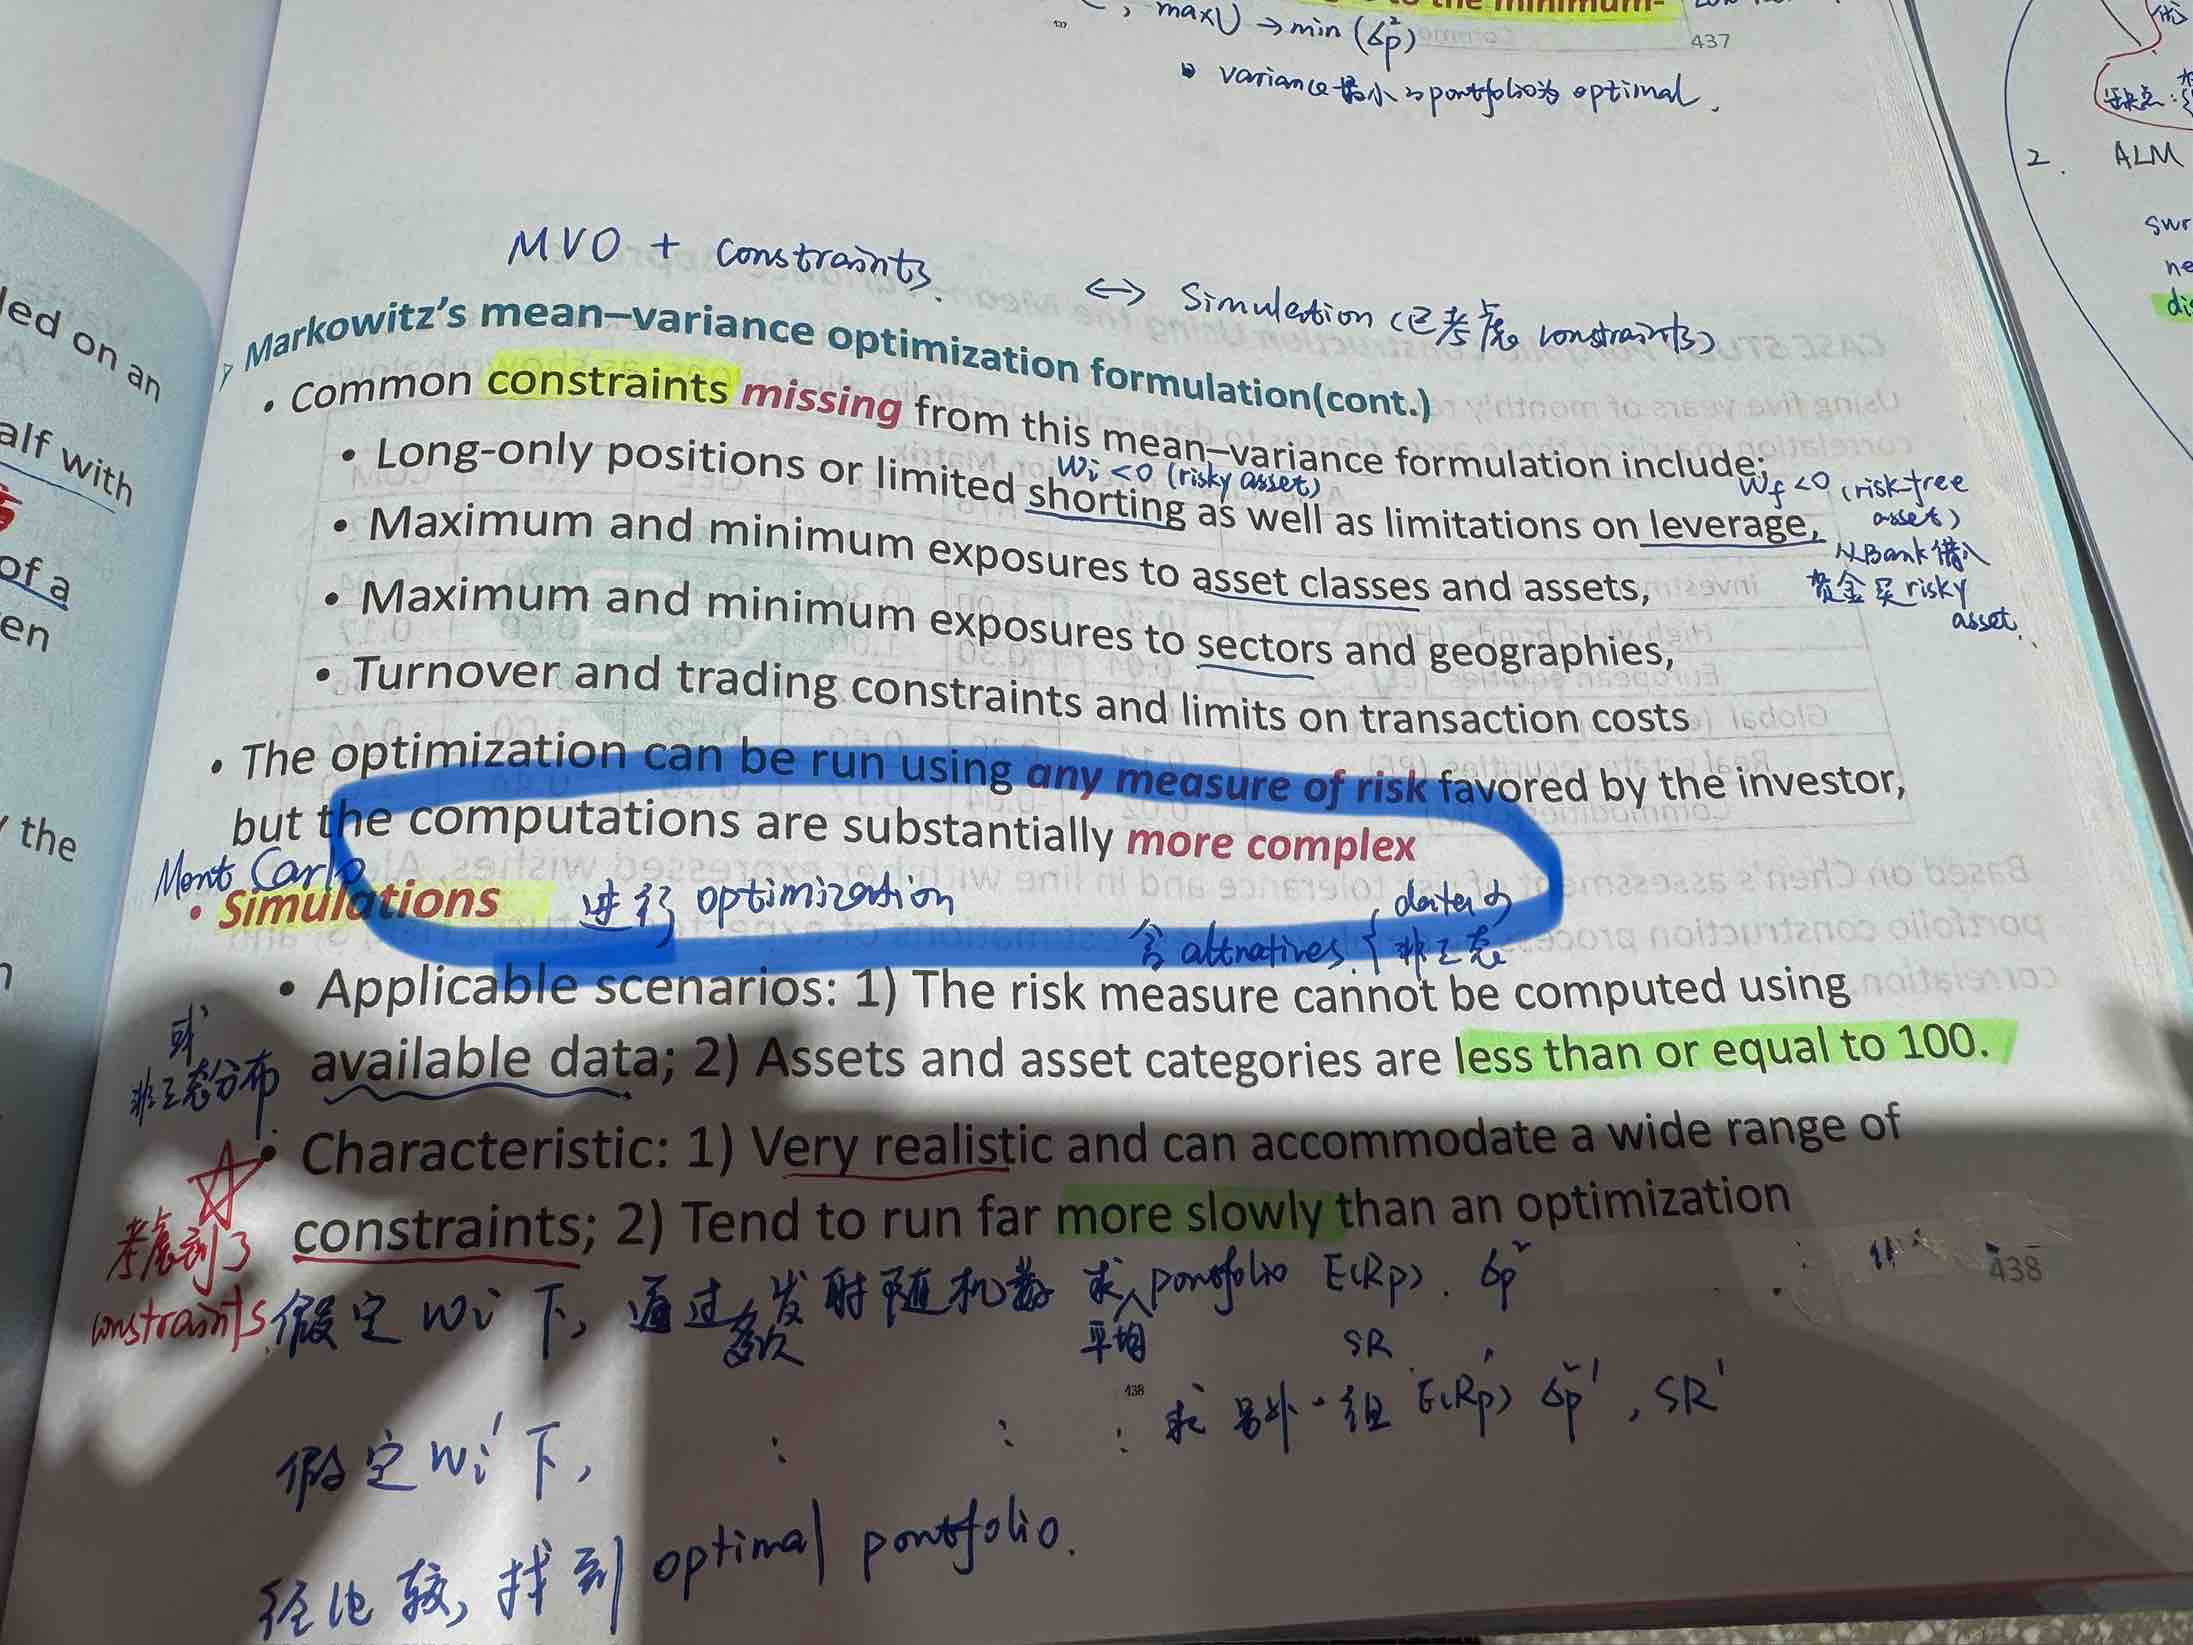 the minimum-
, maxU → min (σp²)
437
variance最小的portfolio为optimal.
2. ALM
swr
ne
dis
MVO + constraints. ↔ Simulation (已考虑 constraints)
Markowitz's mean–variance optimization formulation(cont.)
• Common constraints missing from this mean–variance formulation include:
wi<0 (risky asset)
wf<0 (risk-free asset)
• Long-only positions or limited shorting as well as limitations on leverage,
从Bank借入
资金买risky
asset.
• Maximum and minimum exposures to asset classes and assets,
• Maximum and minimum exposures to sectors and geographies,
• Turnover and trading constraints and limits on transaction costs
• The optimization can be run using any measure of risk favored by the investor,
but the computations are substantially more complex
Mont Carlo
• Simulations 进行 optimization
含 altnatives. { data少
非正态
• Applicable scenarios: 1) The risk measure cannot be computed using
available data; 2) Assets and asset categories are less than or equal to 100.
或
非正态分布
• Characteristic: 1) Very realistic and can accommodate a wide range of
constraints; 2) Tend to run far more slowly than an optimization
考虑到了
constraints.
438
假定 wi 下, 通过多次发射随机数 求平均 portfolio E(Rp). σp²
SR
438
假定 wi' 下, : : : 求另外一组 E(Rp)' σp²', SR'
经比较, 找到 optimal portfolio.
led on an
alf with
of a
en
the